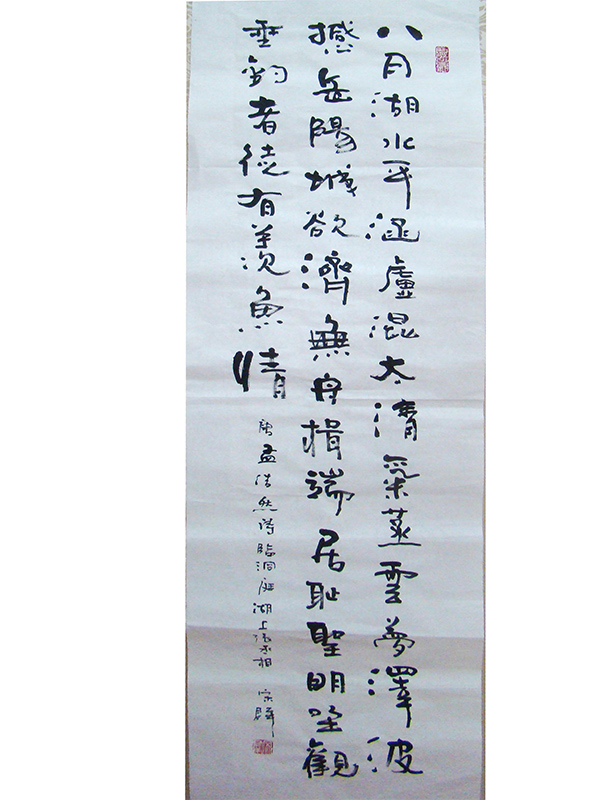 八月湖水平涵虛混太清氣蒸雲夢澤波
撼岳陽城欲濟無舟楫端居耻聖明坐觀
垂釣者徒有羨魚情
唐孟浩然詩臨洞庭湖上張丞相